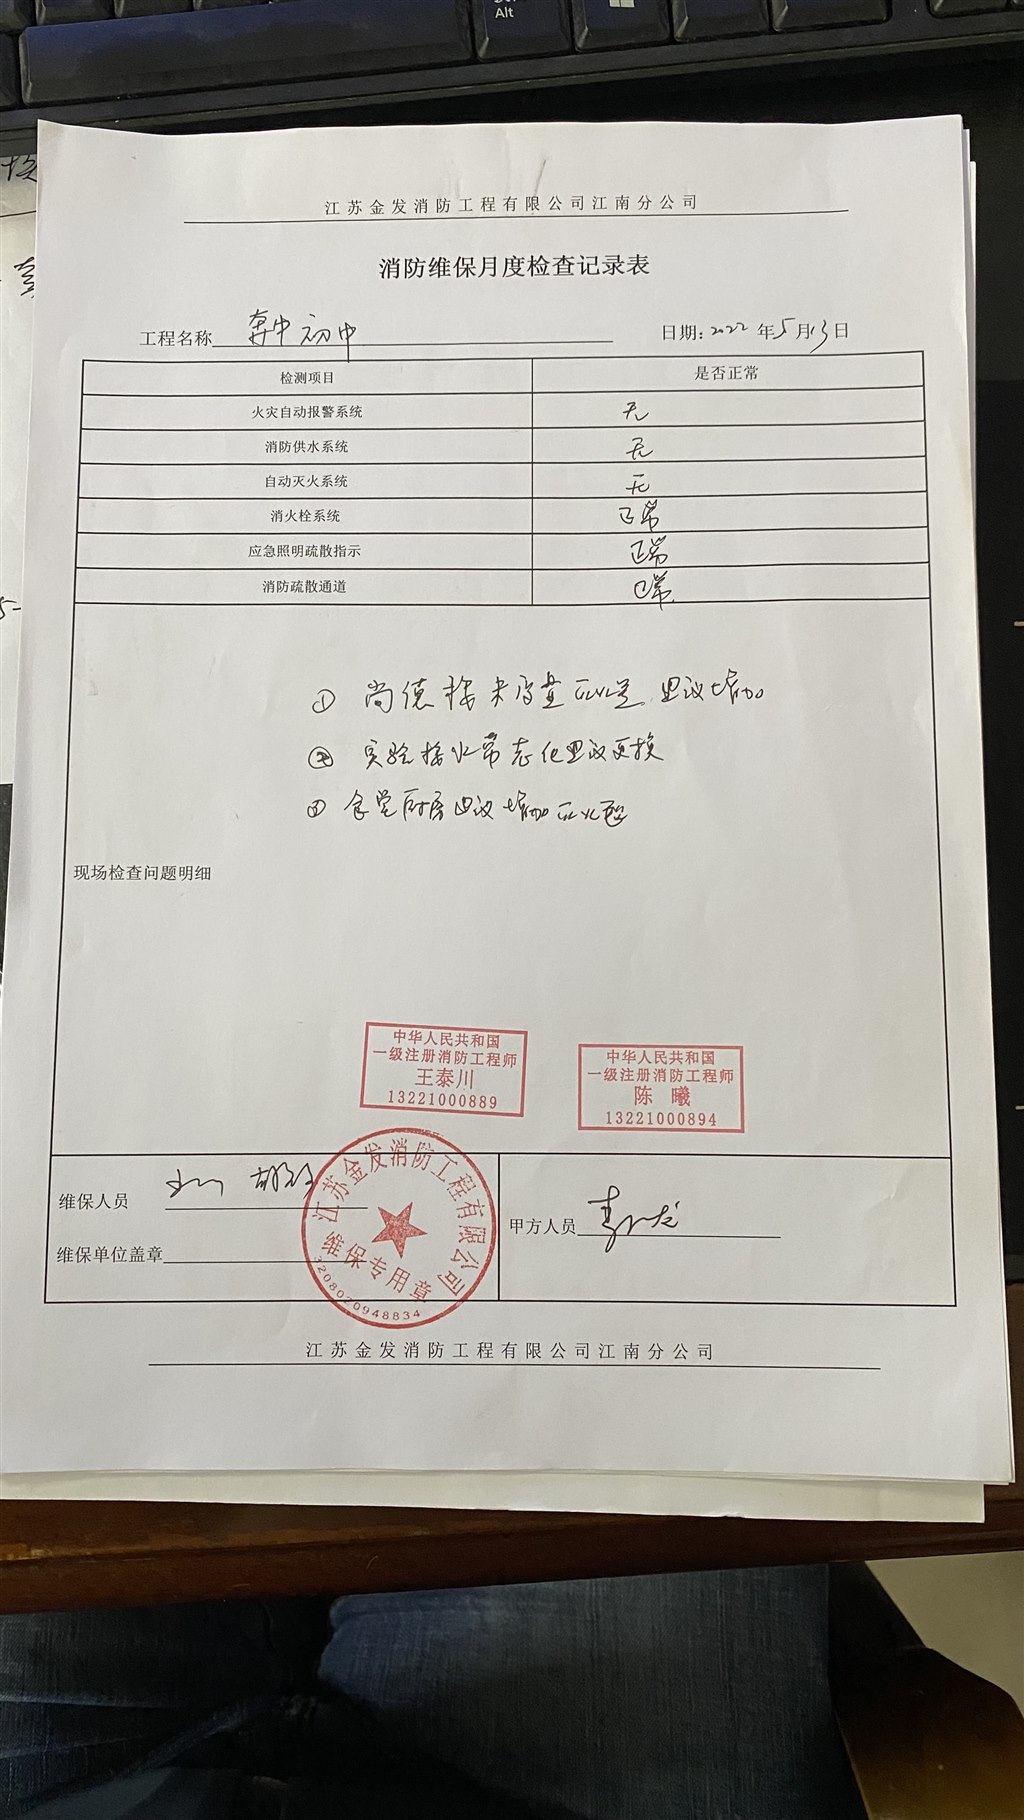 Alt
江苏金发消防工程有限公司江南分公司
消防维保月度检查记录表
工程名称 奔中初中 日期: 2022 年 5 月 13 日
检测项目 是否正常
火灾自动报警系统 无
消防供水系统 无
自动灭火系统 无
消火栓系统 正常
应急照明疏散指示 正常
消防疏散通道 正常
① 尚德楼 建议增加
② 实验楼 建议更换
③ 食堂厨房建议增加
现场检查问题明细
中华人民共和国
一级注册消防工程师
王泰川
13221000889
中华人民共和国
一级注册消防工程师
陈 曦
13221000894
维保人员
甲方人员
维保单位盖章
江苏金发消防工程有限公司
维保专用章
3208020948834
江苏金发消防工程有限公司江南分公司